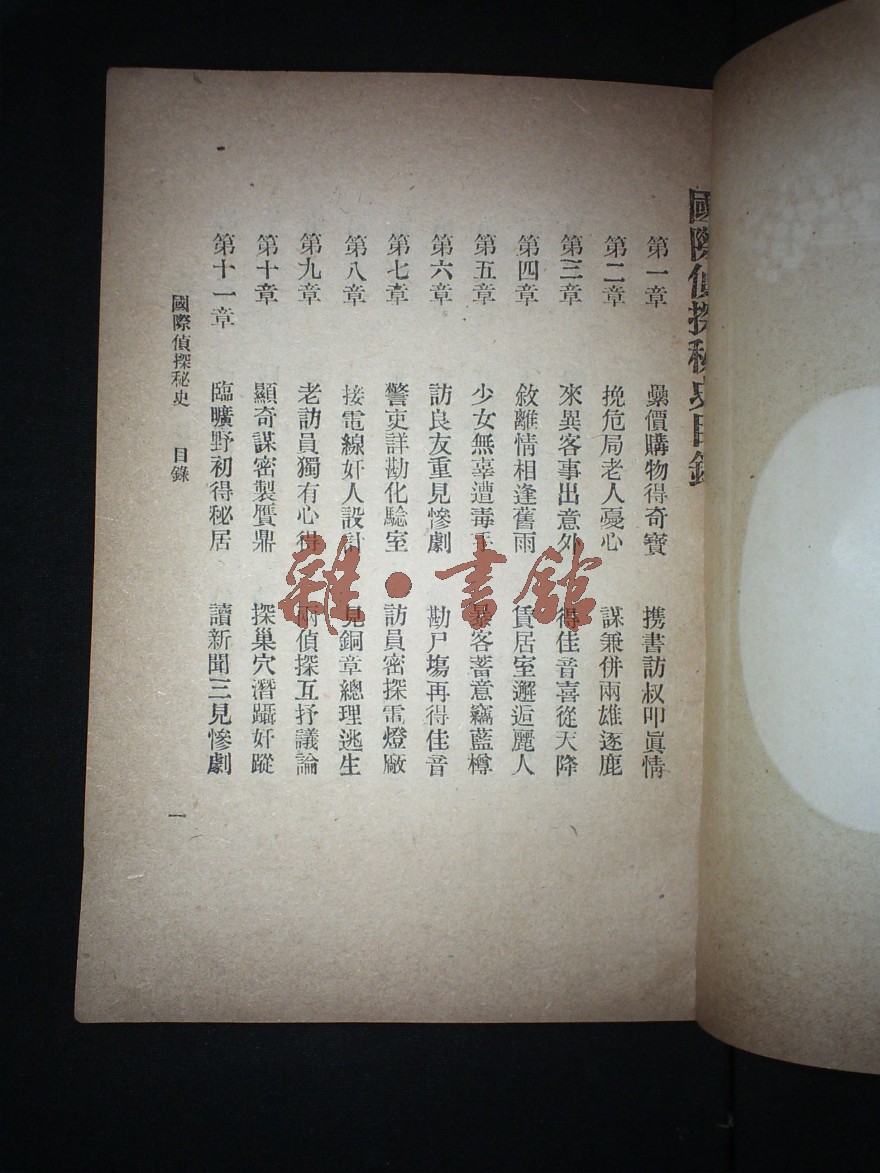 國際偵探秘史目錄
第一章 纍價購物得奇寶 携書訪叔叩眞情
第二章 挽危局老人憂心 謀兼併兩雄逐鹿
第三章 來異客事出意外 得佳音喜從天降
第四章 敘離情相逢舊雨 賃居室邂逅麗人
第五章 少女無辜遭毒手 暴客蓄意竊藍樽
第六章 訪良友重見慘劇 勘尸塲再得佳音
第七章 警吏詳勘化騐室 訪員密探電燈廠
第八章 接電線奸人設計 見銅章總理逃生
第九章 老訪員獨有心得 兩偵探互抒議論
第十章 顯奇謀密製贋鼎 探巢穴潛躡奸蹤
第十一章 臨曠野初得秘居 讀新聞三見慘劇
國際偵探秘史 目錄 一
雜·書舘